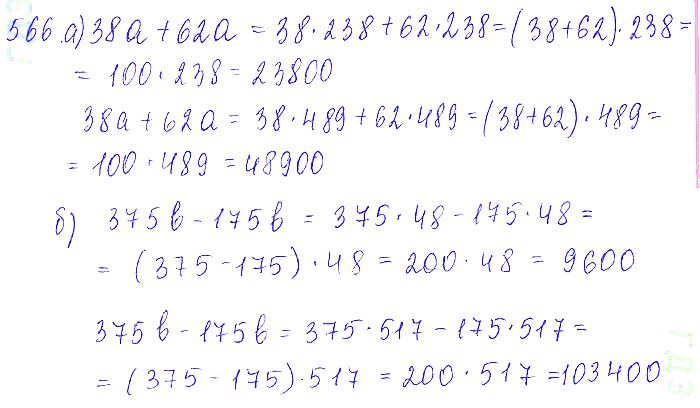 566. а) 38a + 62a = 38 · 238 + 62 · 238 = (38 + 62) · 238 =
= 100 · 238 = 23800
38a + 62a = 38 · 489 + 62 · 489 = (38 + 62) · 489 =
= 100 · 489 = 48900
б) 375b - 175b = 375 · 48 - 175 · 48 =
= (375 - 175) · 48 = 200 · 48 = 9600
375b - 175b = 375 · 517 - 175 · 517 =
= (375 - 175) · 517 = 200 · 517 = 103400
ГДЗ